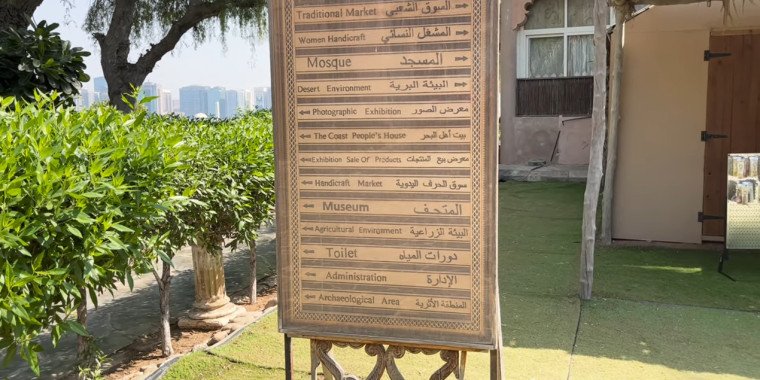 Traditional Market السوق الشعبي →
Women Handicraft المشغل النسائي →
Mosque المسجد →
Desert Environment البيئة البرية →
← Photographic Exhibition معرض الصور
← The Coast People's House بيت أهل البحر
← Exhibition Sale Of Products معرض بيع المنتجات
← Handicraft Market سوق الحرف اليدوية
← Museum المتحف
← Agricultural Environment البيئة الزراعية
← Toilet دورات المياه
← Administration الإدارة
← Archaeological Area المنطقة الأثرية